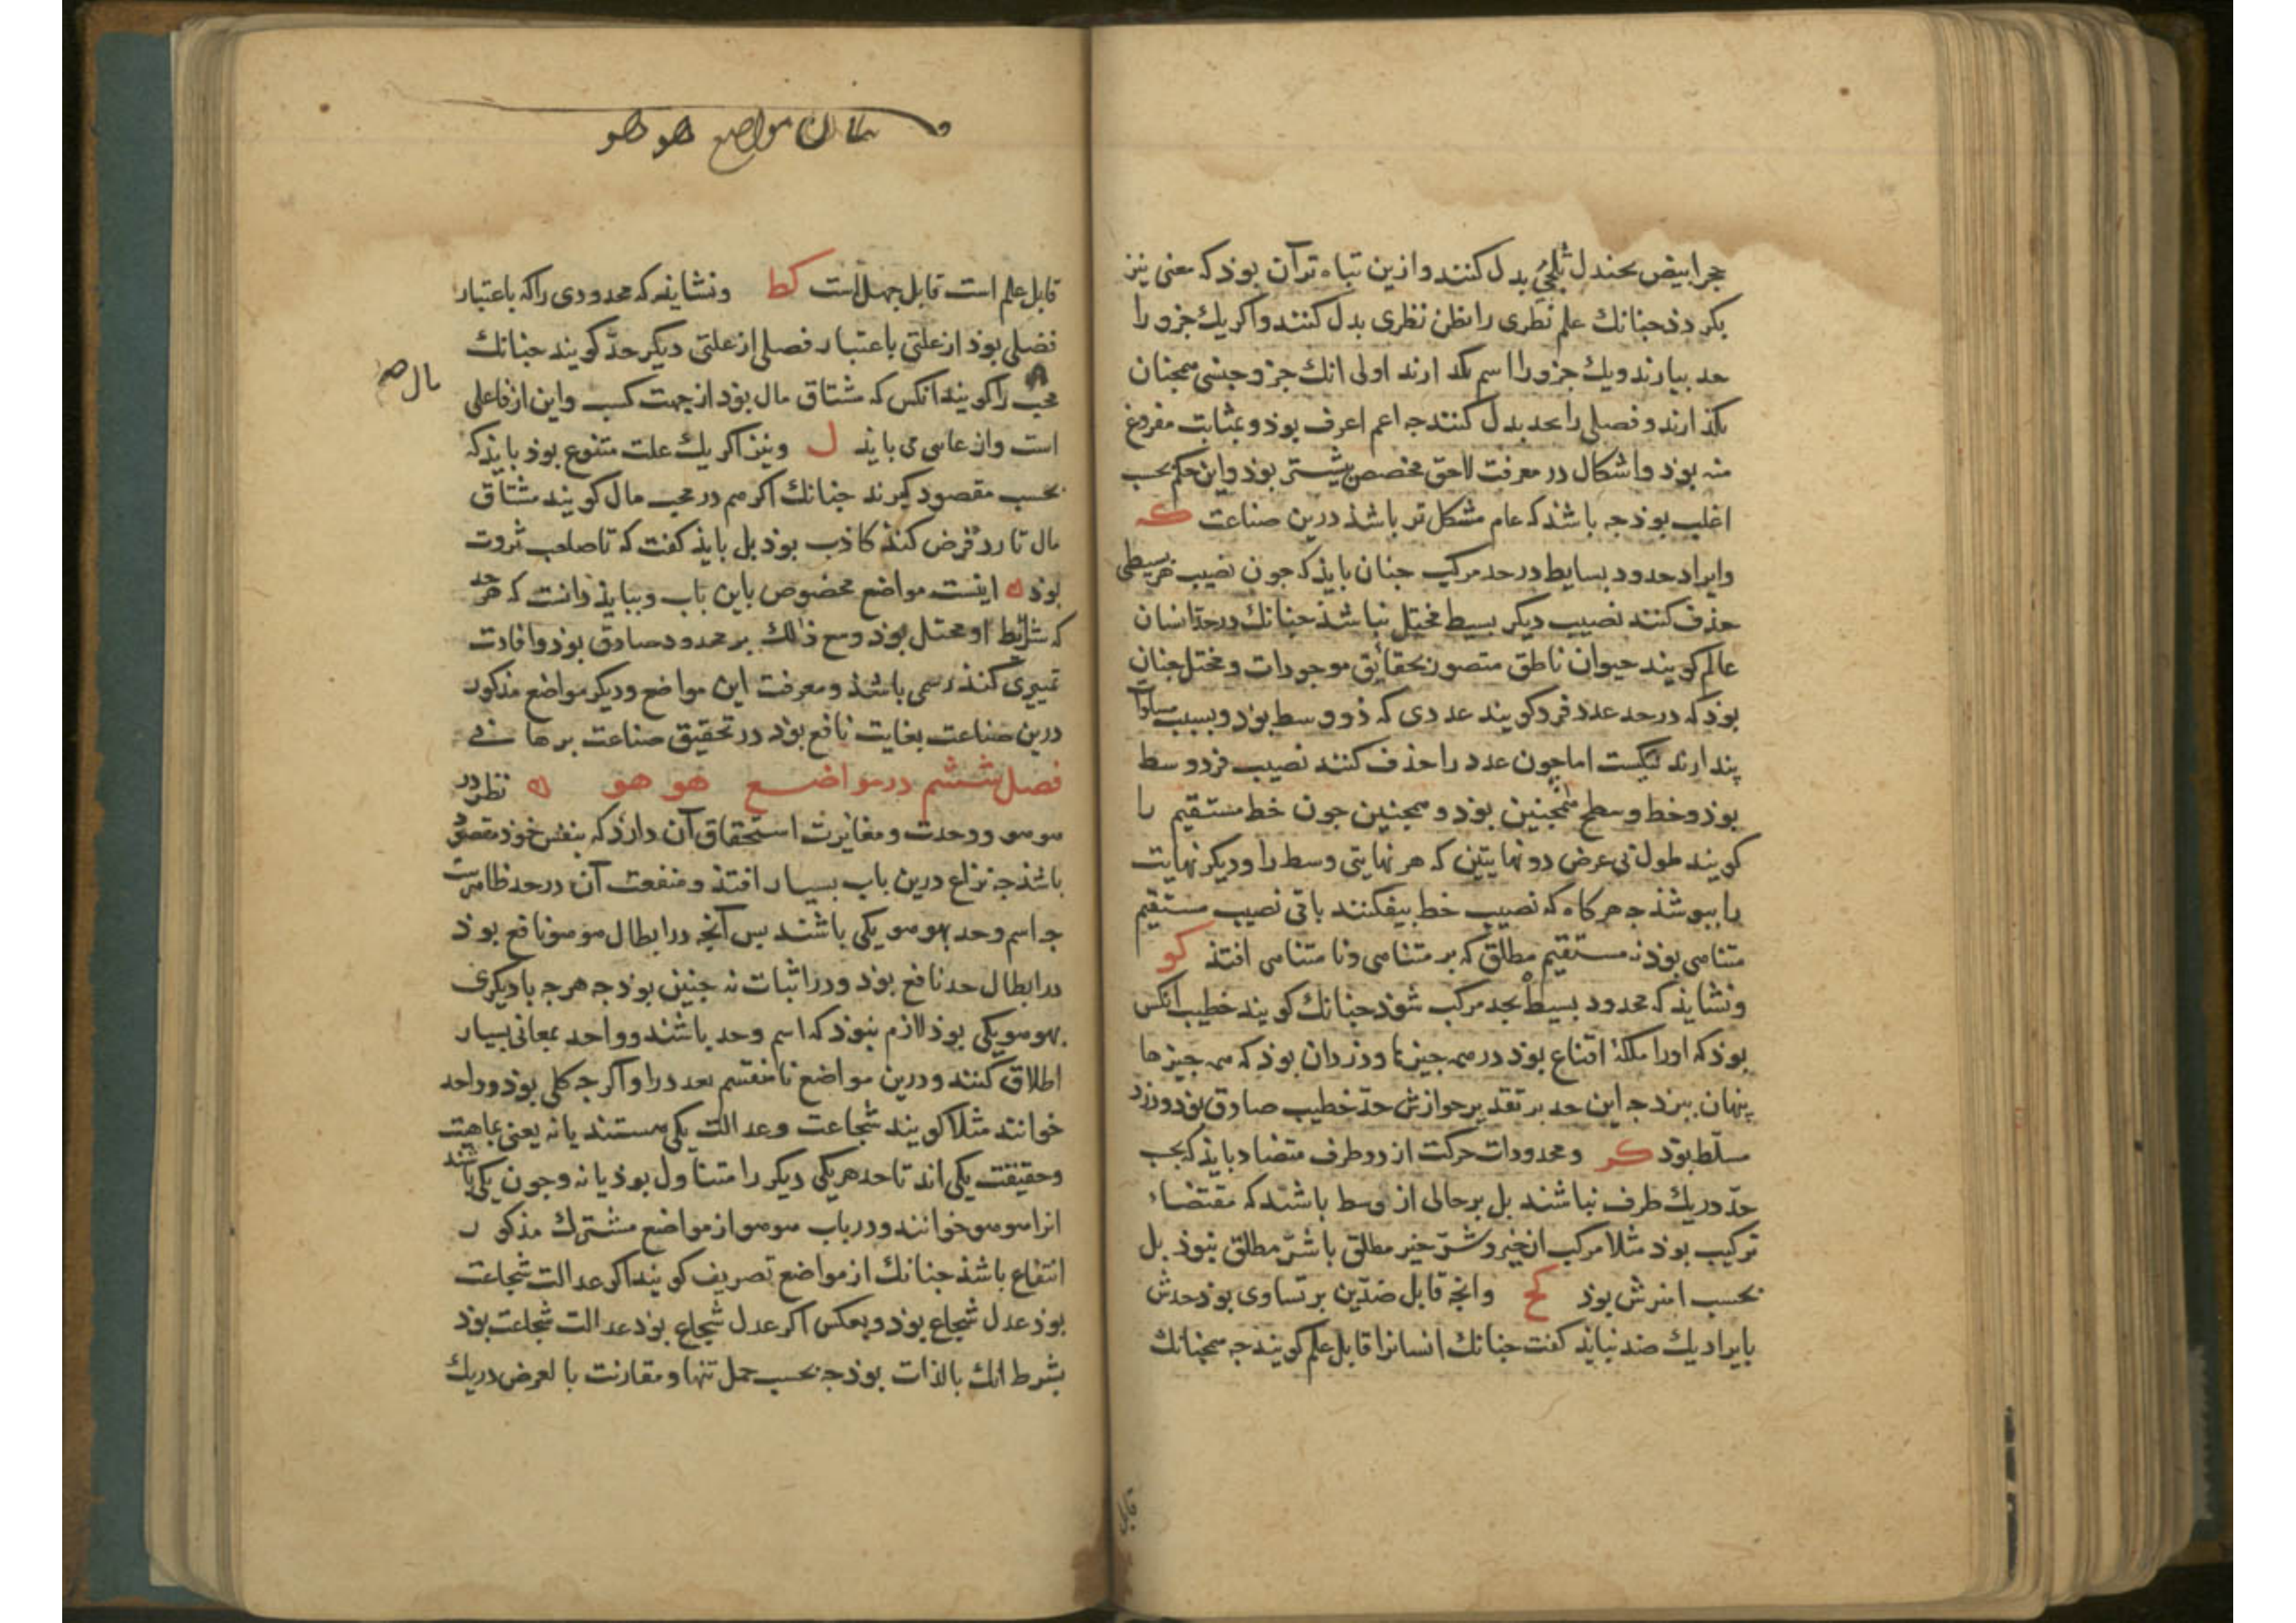 حجر ابیض بجندل ثلجی بدل کنند و ازین تباه تر آن بوذ که معنی نیز
بکردذ جنانك علم نظری را بظن نظری بدل کنند و اکر یك جزو را
حد بیارند و یك جزو را اسم بکذارند اولی انك جزو جنسی همجنان
بکذارند و فصلی را بحد بدل کنند جه اعم اعرف بوذ و بمثابت مفروغ
منه بوذ و اشکال در معرفت لاحق مخصص بیشتر بوذ و این حکم بحسب
اغلب بوذ جه باشذ که عام مشکل تر باشذ درین صناعت که
و ایراد حدود بسایط در حد مرکب جنان بایذ که جون نصیب هر بسیطی
حذف کنند نصیب دیکر بسیط مختل نباشذ جنانك در حد انسان
عالم کویند حیوان ناطق متصور بحقائق موجودات و مختل جنان
بوذ که در حد عدد فرد کویند عددی که ذو وسط بوذ و بسبب مساوات
پندارند نیکست اما جون عدد را حذف کنند نصیب فرد وسط
بوذ و خط و سطح همجنین بوذ و همجنین جون خط مستقیم را
کویند طول بی عرض دو نهایتین که هر نهایتی وسط را و دیکر نهایت
را ببوشذ جه هر کاه که نصیب خط بیفکنند باقی نصیب مستقیم
متناهی بوذ نه مستقیم مطلق که بر متناهی و نا متناهی افتذ کو
و نشایذ که محدود بسیط بحد مرکب شوذ جنانك کویند خطیب انکس
بوذ که او را ملکۀ اقناع بوذ در همه جیزها و دزد ان بوذ که همه جیزها
پنهان ببرد جه این حد بر تقدیر جوازش حد خطیب صادق بوذ و دزد
مسلط بوذ کز و محدودات حرکت از دو طرف متضاد بایذ که بحسب
حد در یك طرف نباشند بل بر حالی از وسط باشند که مقتضاء
ترکیب بوذ مثلا مرکب از خیر و شر خیر مطلق یا شر مطلق نبوذ بل
بحسب امتزش بوذ کح و انچه قابل ضدین بر تساوی بوذ حدش
بایراد یك ضد نبایذ کفت جنانك انسانرا قابل علم کویند جه همجنانك
بیان مواضع هو هو
قابل علم است قابل جهل است کط و نشاید که محدودی را که باعتبار
فصلی بوذ از علتی باعتبار فصلی از علتی دیکر حد کویند جنانك
محب را کویند انکس که مشتاق مال بوذ از جهت کسب و این از فاعلی
مال صح
است و از غایی می بایذ ل و نیز اکر یك علت متنوع بوذ بایذ که
بحسب مقصود کیرند جنانك اکر هم در محب مال کویند مشتاق
مال تا رد قرض کند کاذب بوذ بل بایذ کفت که تا صاحب ثروت
بوذ ه اینست مواضع مخصوص باین باب و ببایذ دانست که هر حد
که شرایط او مختل بوذ و مع ذلك بر محدود صادق بوذ و افادت
تمییزی کند رسمی باشذ و معرفت این مواضع و دیکر مواضع مذکور
درین صناعت بغایت نافع بوذ در تحقیق صناعت برهانی
فصل ششم در مواضع هو هو ه نظر در
هو هو و وحدت و مغایرت استحقاق آن دارذ که بنفس خوذ مقصود
باشذ جه نزاع درین باب بسیار افتذ و منفعت آن در حد ظاهرست
جه اسم و حد بهو هو یکی باشند بس آنجه در ابطال هو هو نافع بوذ
در ابطال حد نافع بوذ و در اثبات نه جنین بوذ جه هرجه با دیکری
بهو هو یکی بوذ لازم نبوذ که اسم و حد باشند و واحد بمعانی بسیار
اطلاق کنند و درین مواضع نا منقسم بعدد را و اکرجه کلی بوذ واحد
خوانند مثلا کویند شجاعت و عدالت یکی هستند یا نه یعنی بماهیت
و حقیقت یکی اند تا حد هر یکی دیکر را متناول بوذ یا نه و جون یکی باشند
انرا هو هو خوانند و در باب هو هو از مواضع مشترك مذکور
انتفاع باشذ جنانك از مواضع تصریف کویند اکر عدالت شجاعت
بوذ عدل شجاع بوذ و بعکس اکر عدل شجاع بوذ عدالت شجاعت بوذ
بشرط انك بالذات بوذ جه بحسب حمل تنها و مقارنت بالعرض در یك